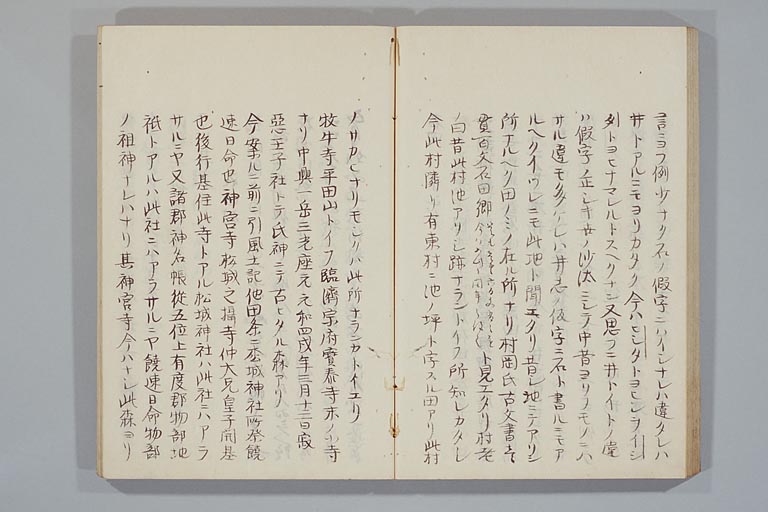 言ミフ例少ナク石ノ假字ニハイシナレハ違タレハ
井トアルニモヨリカタク今ハモシタトヨヒシヲイシ
タトヨヒナマレルトスヘクナン又思フニ井トイトノ
ハ假字ノ正シキ世ノ沙汰ニシテ中昔ヨリノモノニハ
サル違モ多ケレハ井志ノ假字ニ石ト書ルニモア
ルヘクイツレニモ此地ト聞エタリ昔シ池ニテアリシ
所ナルヘク田ノミノ在ル所ナリ村岡氏古文書
貫百文石田郷 ト見エタリ村老
ノ曰昔此村池アリシ跡ナラントイフ所知レカタシ
今此村隣リ有東村ニ池ノ坪ト字スル田アリ此村
ノサカヒナリモシクハ此所ナランカトイエリ
牧牛寺平田山トイフ臨濟宗府寶泰寺末ノ小寺
ナリ中興一岳三光座元元和四戌年三月十二日寂
惡王子社トテ氏神ニテ古ヒタル森アリ
今案ルニ前ニ引風土記他田条ニ松城神社所奉饒
速日命也神宮寺松城之攝寺仲大兄皇子開基
也後行基住此寺トアル松城神社ハ此社ニハアラ
サルニヤ又諸郡神名帳從五位上有度郡物部地
祇トアルハ此社ニハアラサルニヤ饒速日命物部
ノ祖神ナレハナリ其神宮寺今ハナシ此森ヨリ